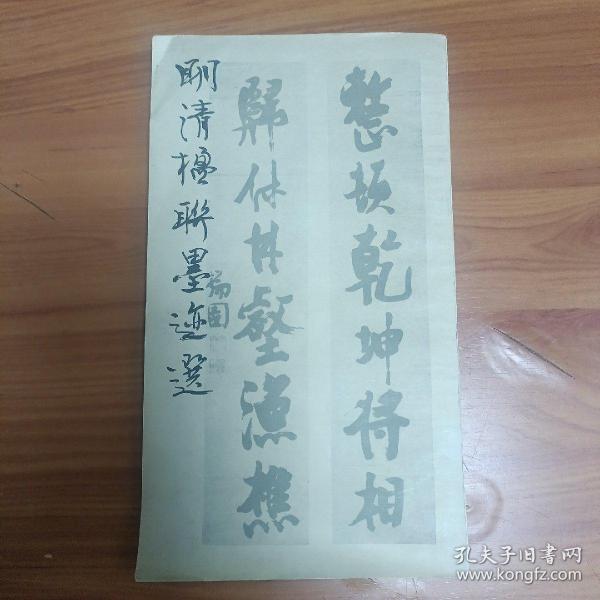 整頓乾坤將相
歸休林壑漁樵
明清楹聯墨迹選
孔夫子旧书网
www.kongfz.com